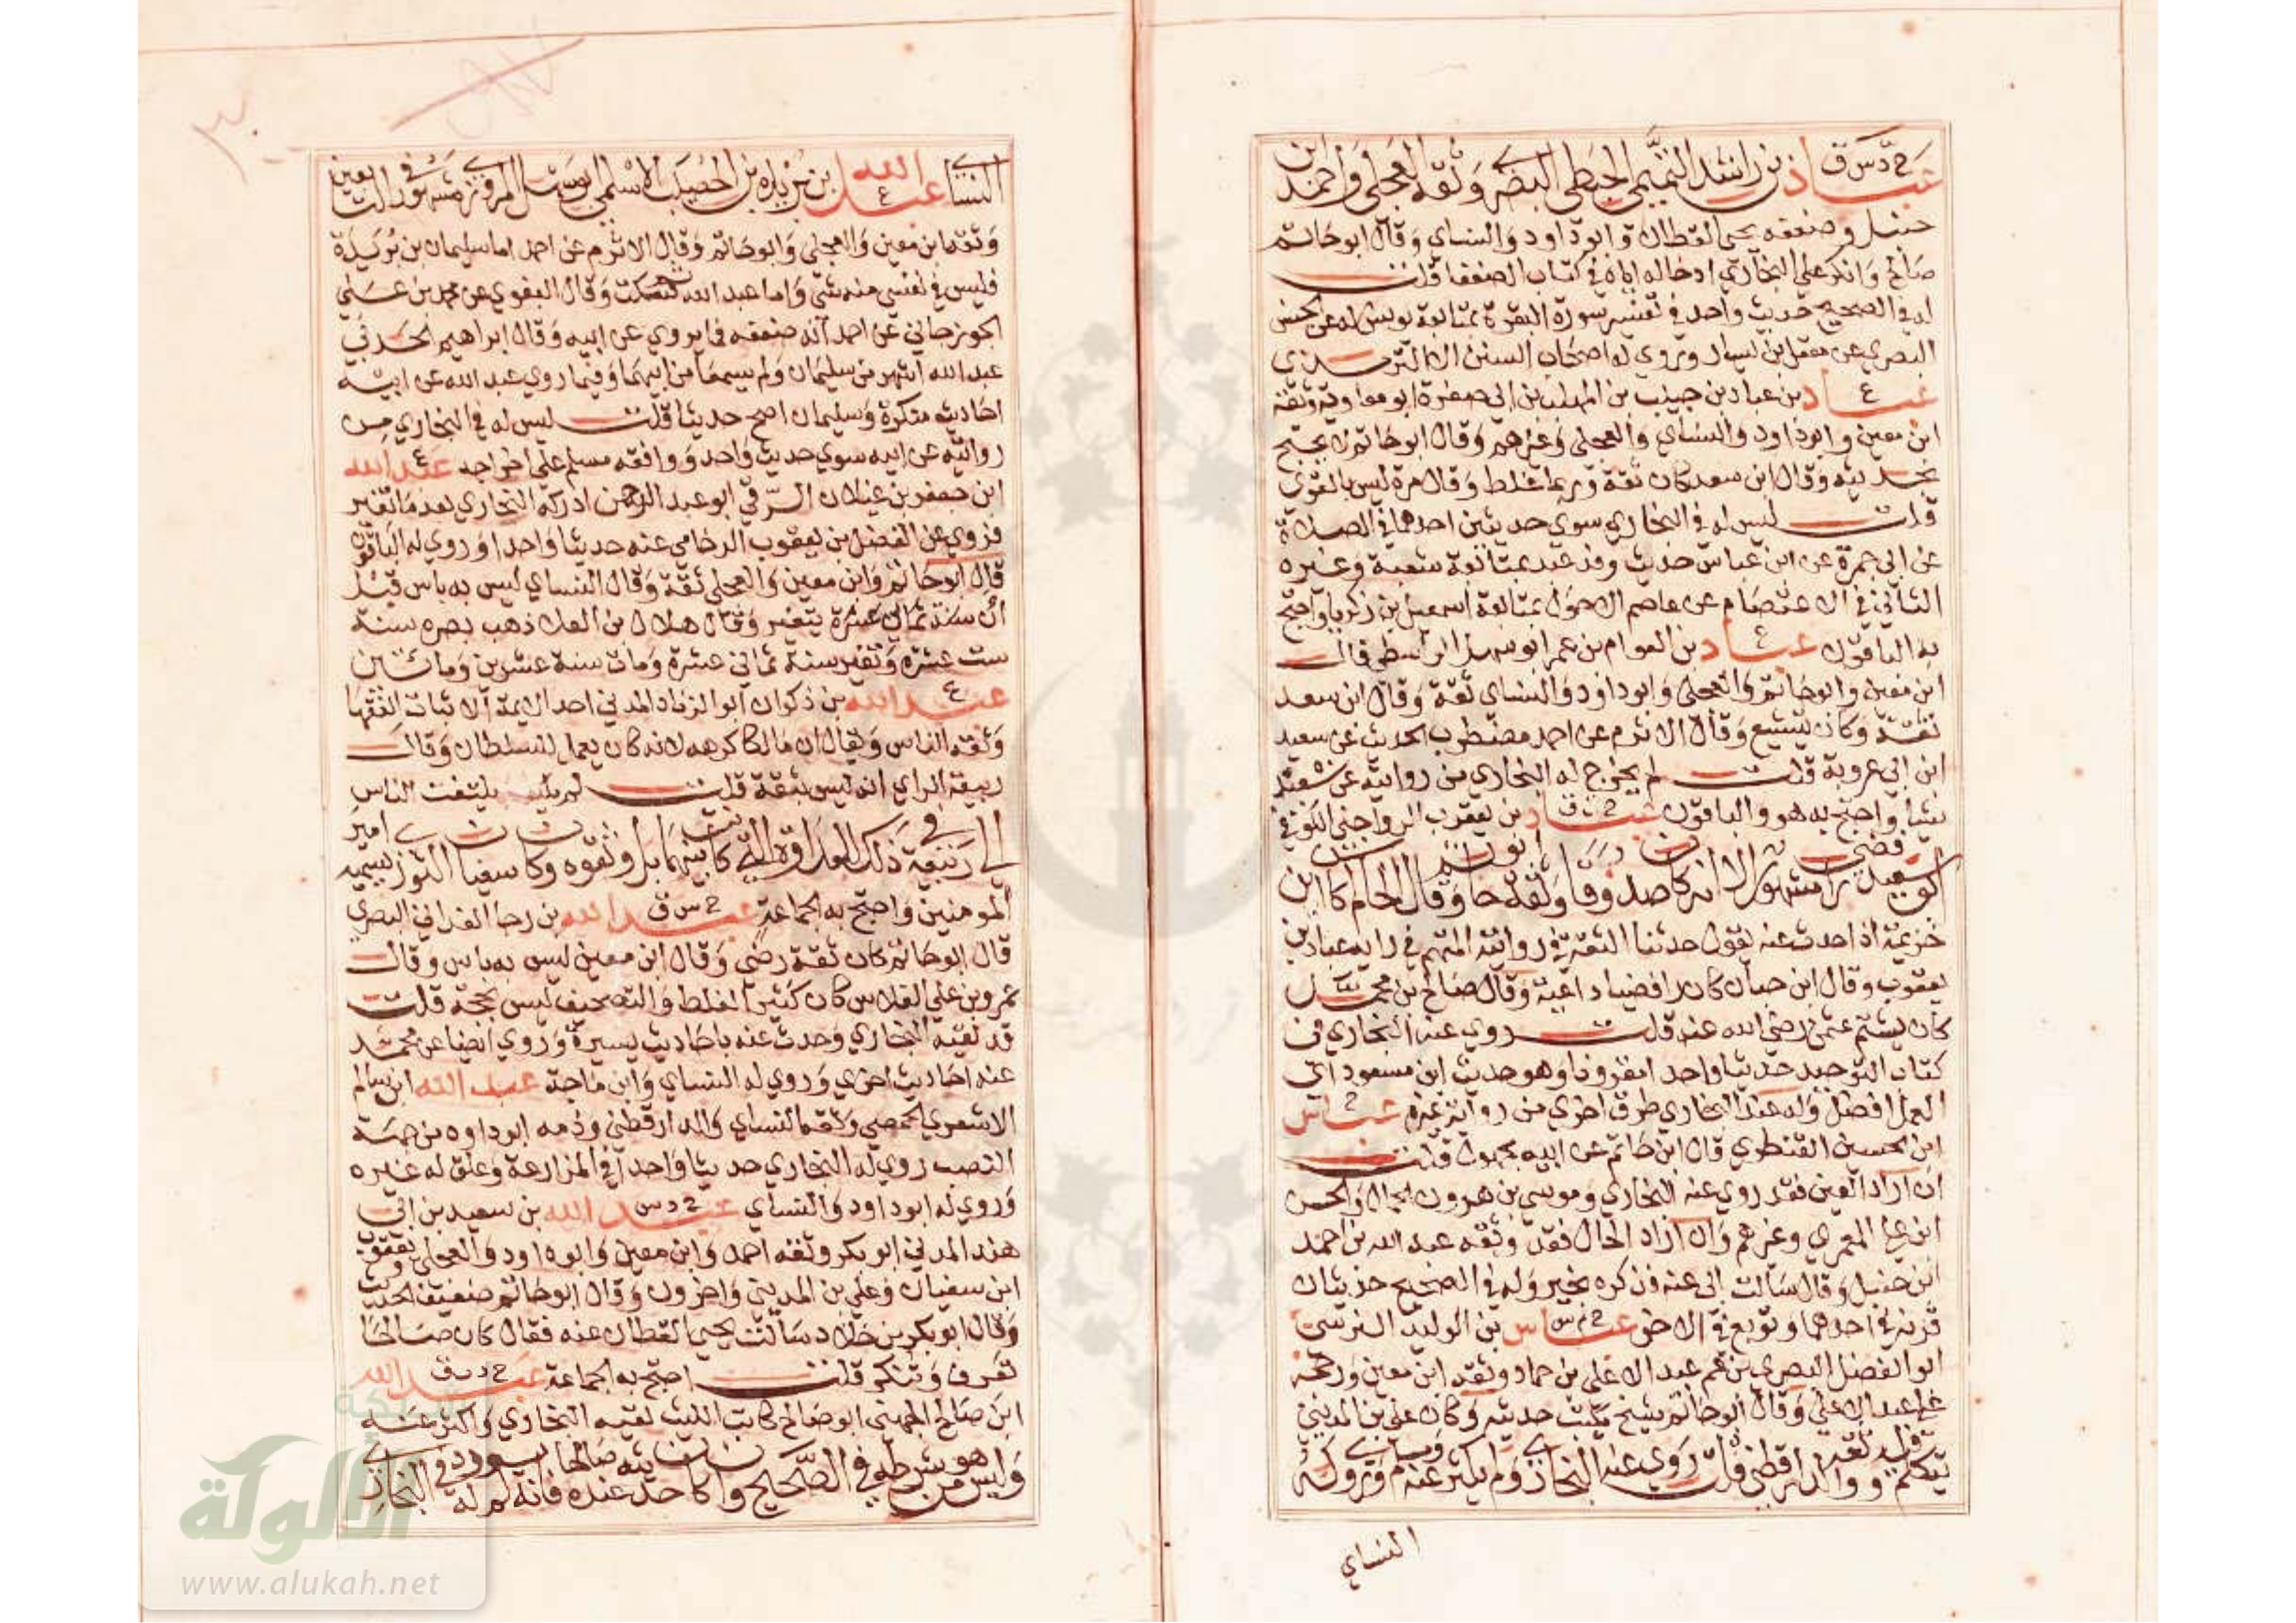 خ د س ق
عباد بن راشد التميمي الحبطي البصري وثقه العجلي واحمد ابن
حنبل وضعفه يحيى القطان وابوداود والنساي وقال ابوحاتم
صالح وانكر على البخاري ادخاله اياه في كتاب الضعفا قلت
له في الصحيح حديث واحد في تفسير سورة البقرة بمتابعة يونس له عن الحسن
البصري عن معقل بن يسار وروي له اصحاب السنن الا الترمذي
ع
عباد بن عباد بن حبيب بن المهلب بن ابي صفرة ابو معاوية وثقه
ابن معين وابوداود والنساي والعجلي وغيرهم وقال ابوحاتم لا يحتج
بحديثه وقال ابن سعد كان ثقة وربما غلط وقال مرة ليس بالقوي
قلت ليس له في البخاري سوي حديثين احدهما في الصلاة
عن ابي جمرة عن ابن عباس حديث وفد عبد بمتابعة شعبة وغيره
الثاني في الاعتصام عن عاصم الاحول بمتابعة اسمعيل بن زكريا واحتج
به الباقون عباد بن العوام بن عمر ابوسهل الواسطي قال
ع
ابن معين وابوحاتم والعجلي وابوداود والنساي ثقة وقال ابن سعد
ثقة وكان يتشيع وقال الاثرم عن احمد مضطرب الحديث عن سعيد
ابن ابي عروبة قلت لم يخرج له البخاري من روايته عن سعيد
شيا واحتج به هو والباقون عباد بن يعقوب الرواجني الكوفي
خ ت ق
ابو سعيد رافضي مشهور الا انه كان صدوقا وثقه ابوحاتم وقال الحاكم كان ابن
خزيمة اذا حدث عنه يقول حدثنا الثقة في روايته المتهم في رايه عباد بن
يعقوب وقال ابن حبان كان رافضيا داعية وقال صالح بن محمد
كان يشتم عثمن رضي الله عنه قلت روي عنه البخاري في
كتاب التوحيد حديثا واحدا مقرونا وهو حديث ابن مسعود اي
العمل افضل وله عند البخاري طرق اخري من رواية غيره عباس
خ
ابن الحسين القنطري قال ابن حاتم عن ابيه مجهول قلت
ان اراد العين فقد روي عنه البخاري وموسى بن هرون الحمال والحسن
ابن علي المعمري وغيرهم وان اراد الحال فقد وثقه عبد الله بن احمد
ابن حنبل وقال سالت ابي عنه فذكره بخير وله في الصحيح حديثان
قرنه في احدهما وتوبع في الاخر عباس بن الوليد النرسي
خ م س
ابو الفضل البصري بن عم عبد الاعلى بن حماد وثقه ابن معين ورجحه
على عبد الاعلى وقال ابوحاتم شيخ يكتب حديثه وكان علي بن المديني
يتكلم فيه ووثقه الدارقطني قلت روي عنه البخاري ولم يكثر عنه ومسلم وروي له
النساي
النساي عبد الله بن بريدة بن الحصيب الاسلمي ابوسهل المروزي مشهور في التابعين
ع
وثقه ابن معين والعجلي وابوحاتم وقال الاثرم عن احمد اما سليمان بن بريدة
فليس في نفسي منه شي واما عبد الله ثم سكت وقال البغوي عن محمد بن علي
الجوزجاني عن احمد انه ضعفه فيما يروي عن ابيه وقال ابراهيم الحربي
عبد الله اشهر من سليمان ولم يسمعا من ابيهما وفيما روي عبد الله عن ابيه
احاديث منكرة وسليمان اصح حديثا قلت ليس له في البخاري من
روايته عن ابيه سوي حديث واحد ووافقه مسلم على اخراجه عبد الله
ع
ابن جعفر بن غيلان الرقي ابو عبد الرحمن ادركه البخاري بعد ما تغير
فروي عن الفضل بن يعقوب الرخامي عنه حديثا واحدا وروي له الباقون
قال ابوحاتم وابن معين والعجلي ثقة وقال النساي ليس به باس قبل
ان سنة ثماني عشرة يتغير وقال هلال بن العلا ذهب بصره سنة
ست عشرة وتغير سنة ثماني عشرة ومات سنة عشرين ومائتين
ع
عبد الله بن ذكوان ابو الزناد المدني احد الايمة الاثبات الفقها
وثقه الناس ويقال ان مالكا كرهه لانه كان يعمل للسلطان وقال
ربيعة الراي انه ليس بثقة قلت لم يلتفت الناس
الي ربيعة في ذلك للعداوة التي كانت بينهما بل وثقوه وكان سفيان الثوري يسميه امير
المومنين واحتج به الجماعة عبد الله بن رجا الغداني البصري
خ س ق
قال ابوحاتم كان ثقة رضي وقال ابن معين ليس به باس وقال
عمرو بن علي الفلاس كان كثير الغلط والتصحيف ليس بحجة قلت
قد لقيه البخاري وحدث عنه باحاديث يسيرة وروي ايضا عن محمد
عنه احاديث اخري وروي له النساي وابن ماجة عبد الله ابن سالم
الاشعري الحمصي وثقه النساي والدارقطني وذمه ابوداود من جهة
النصب روي له البخاري حديثا واحدا في المزارعة وعلق له غيره
وروي له ابوداود والنساي عبد الله بن سعيد بن ابي
خ د س
هند المدني ابو بكر وثقه احمد وابن معين وابوداود والعجلي ويعقوب
ابن سفيان وعلي بن المديني واخرون وقال ابوحاتم ضعيف الحديث
وقال ابو بكر بن خلاد سالت يحيى القطان عنه فقال كان صالحا
تعرف وتنكر قلت احتج به الجماعة عبد الله
خ د ت ق
ابن صالح الجهني ابو صالح كاتب الليث لقيه البخاري واكثر عنه
وليس هو من شرطه في الصحيح وان كان حديثه عنده صالحا فانه لم يورد له في البخاري
شبكة
الألوكة
www.alukah.net